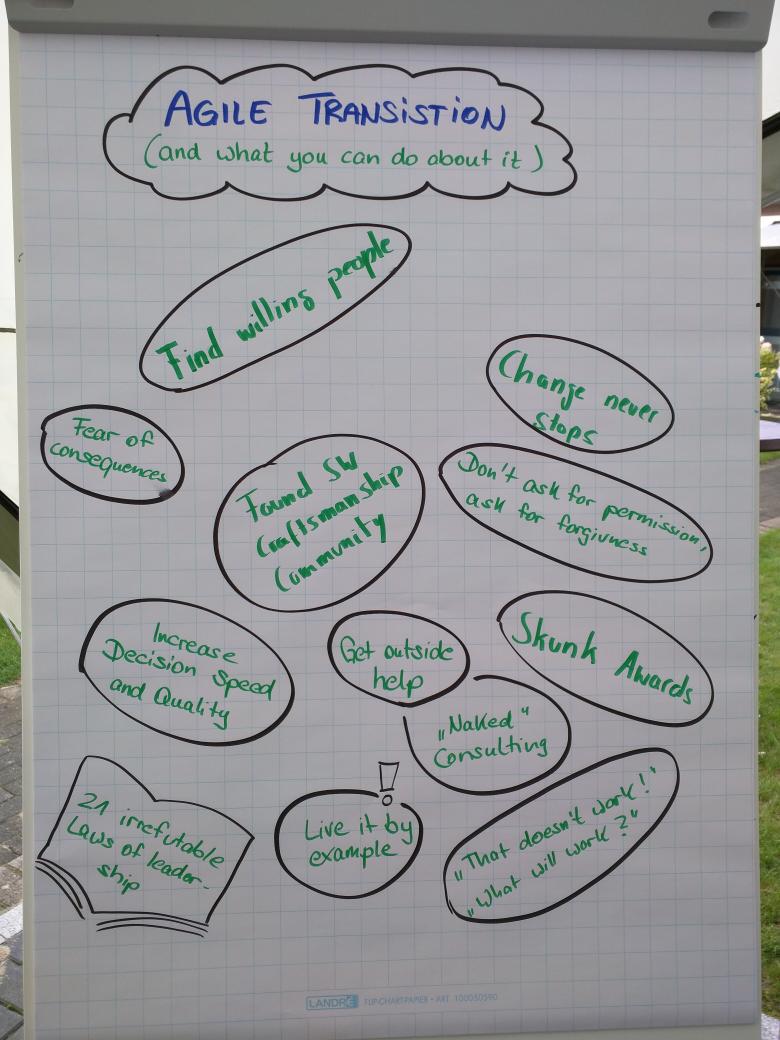 AGILE TRANSISTION
(and what you can do about it)
Find willing people
Change never
stops
Fear of
consequences
Found SW
Craftsmanship
Community
Don't ask for permission,
ask for forgivness
Increase
Decision Speed
and Quality
Get outside
help
Skunk Awards
„Naked“
Consulting
21 irrefutable
Laws of leader-
ship
!
Live it by
example
„That doesn't work!“
„What will work?“
LANDRÉ FLIP-CHART-PAPIER • ART. 100050590